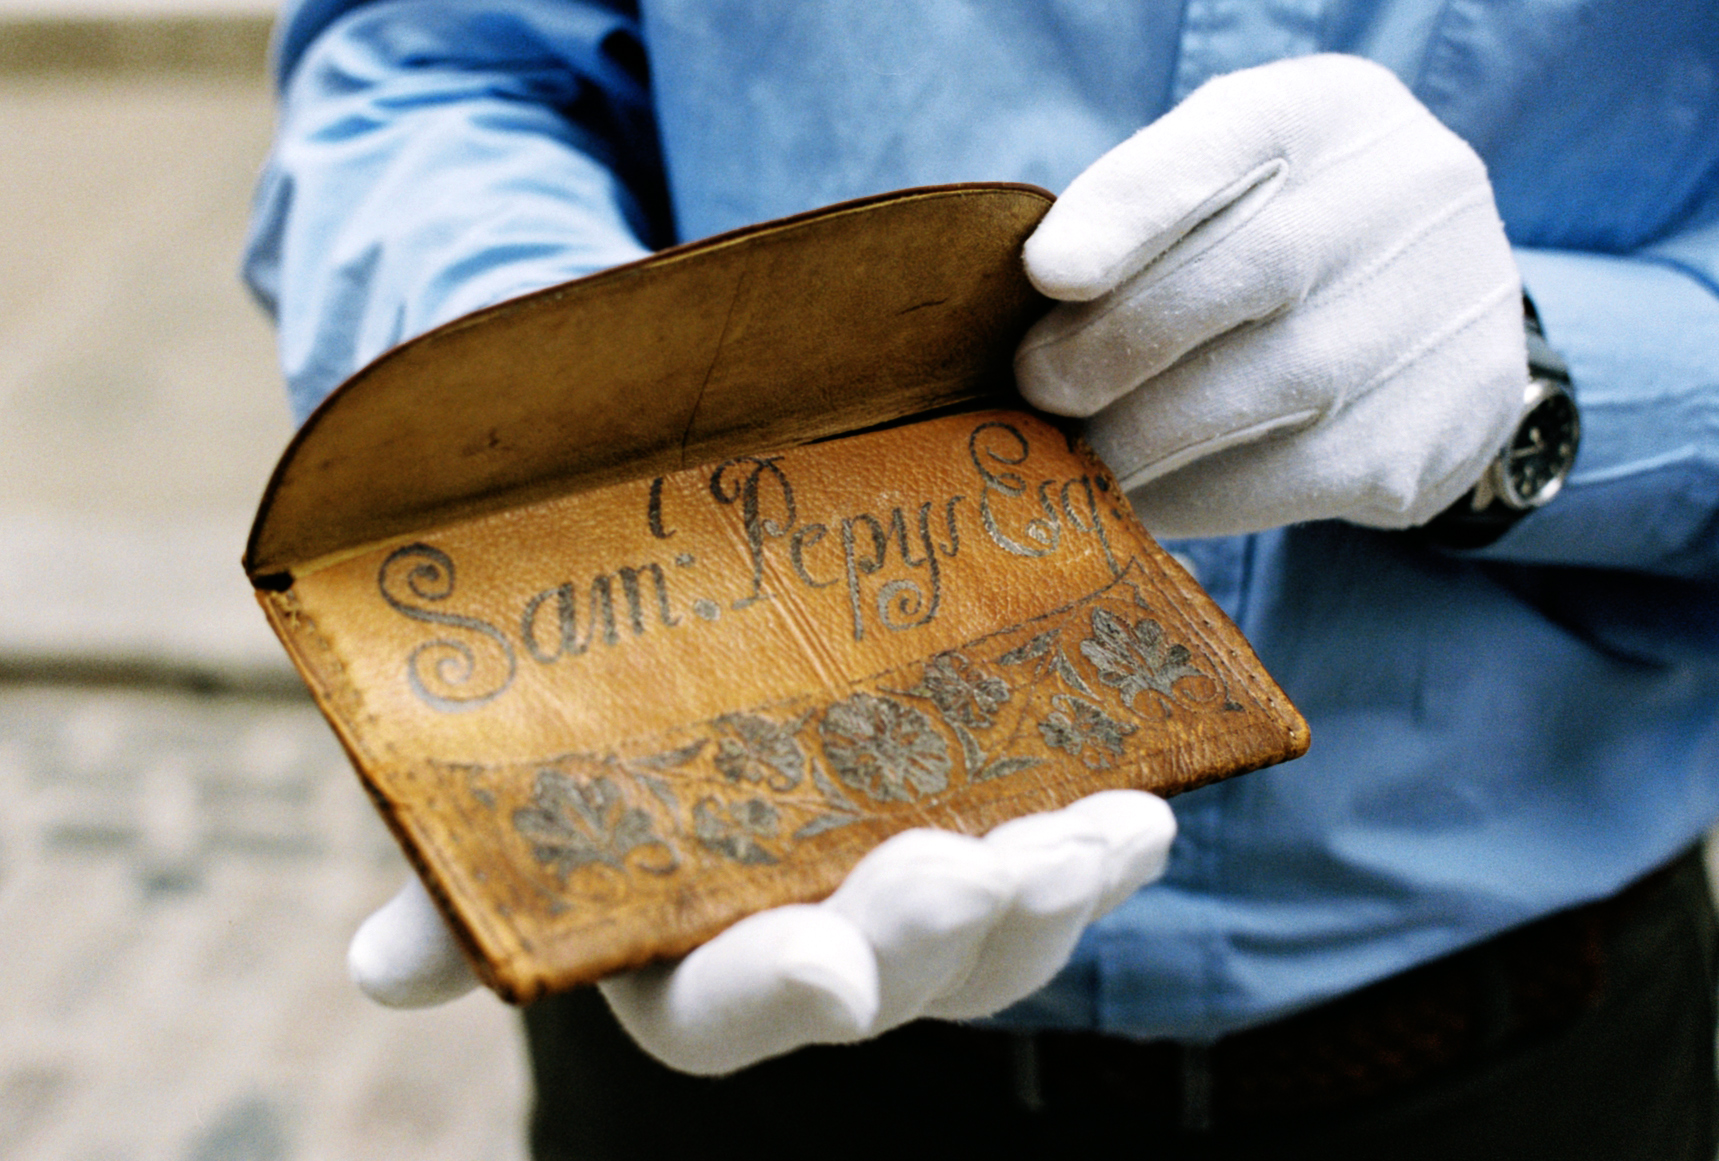 Sam: Pepys Esq